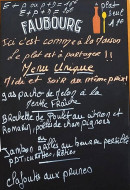 E+P ou P+D
E+P+D
Plat
seul
FAUBOURG
Ici c'est comme à la maison
Le plat est à partager !!
Menu Unique
Midi et Soir au même prix
gaspacho de melon à la
menthe Fraîche
Brochette de Poulet au citron et
Romarin, poêlée de champignons
Jambon grillé au bou persillé
PDT
clafoutis aux prunes